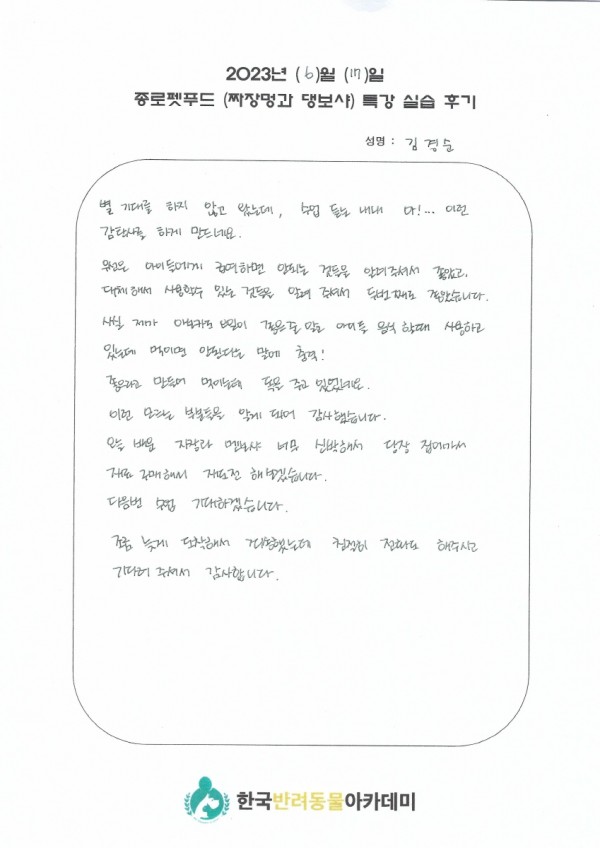 2023년 (6)월 (17)일
종로펫푸드 (짜장멍과 댕보샤) 특강 실습 후기
성명 : 김경순
별 기대를 하지 않고 왔는데, 수업 듣는 내내 다!... 이런
감탄사를 하게 만드네요.
우선은 아이들에게 급여하면 안되는 것들을 알려주셔서 좋았고,
대체해서 사용할수 있는 것들을 알려 주셔서 두번째로 좋았습니다.
사실 제가 아보카도 오일이 좋은줄 알고 아이들 음식 할때 사용하고
있는데 먹이면 안된다는 말에 충격!
좋으라고 만들어 먹이는데 독을 주고 있었네요.
이런 모르는 부분들을 알게 되어 감사했습니다.
오늘 배운 자장과 멘보샤 너무 신박해서 당장 집에가서
재료 구매해서 재도전 해보겠습니다.
다음번 수업 기대하겠습니다.
조금 늦게 도착해서 걱정했는데 친절히 전화도 해주시고
기다려 주셔서 감사합니다.
한국반려동물아카데미